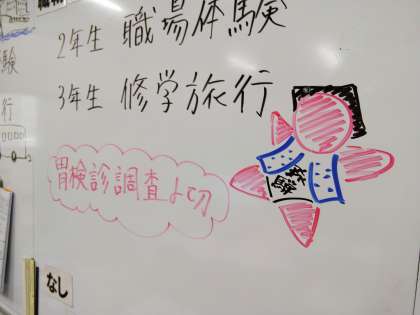 2年生 職場体験
3年生 修学旅行
験
行
胃検診調査〆切
なし